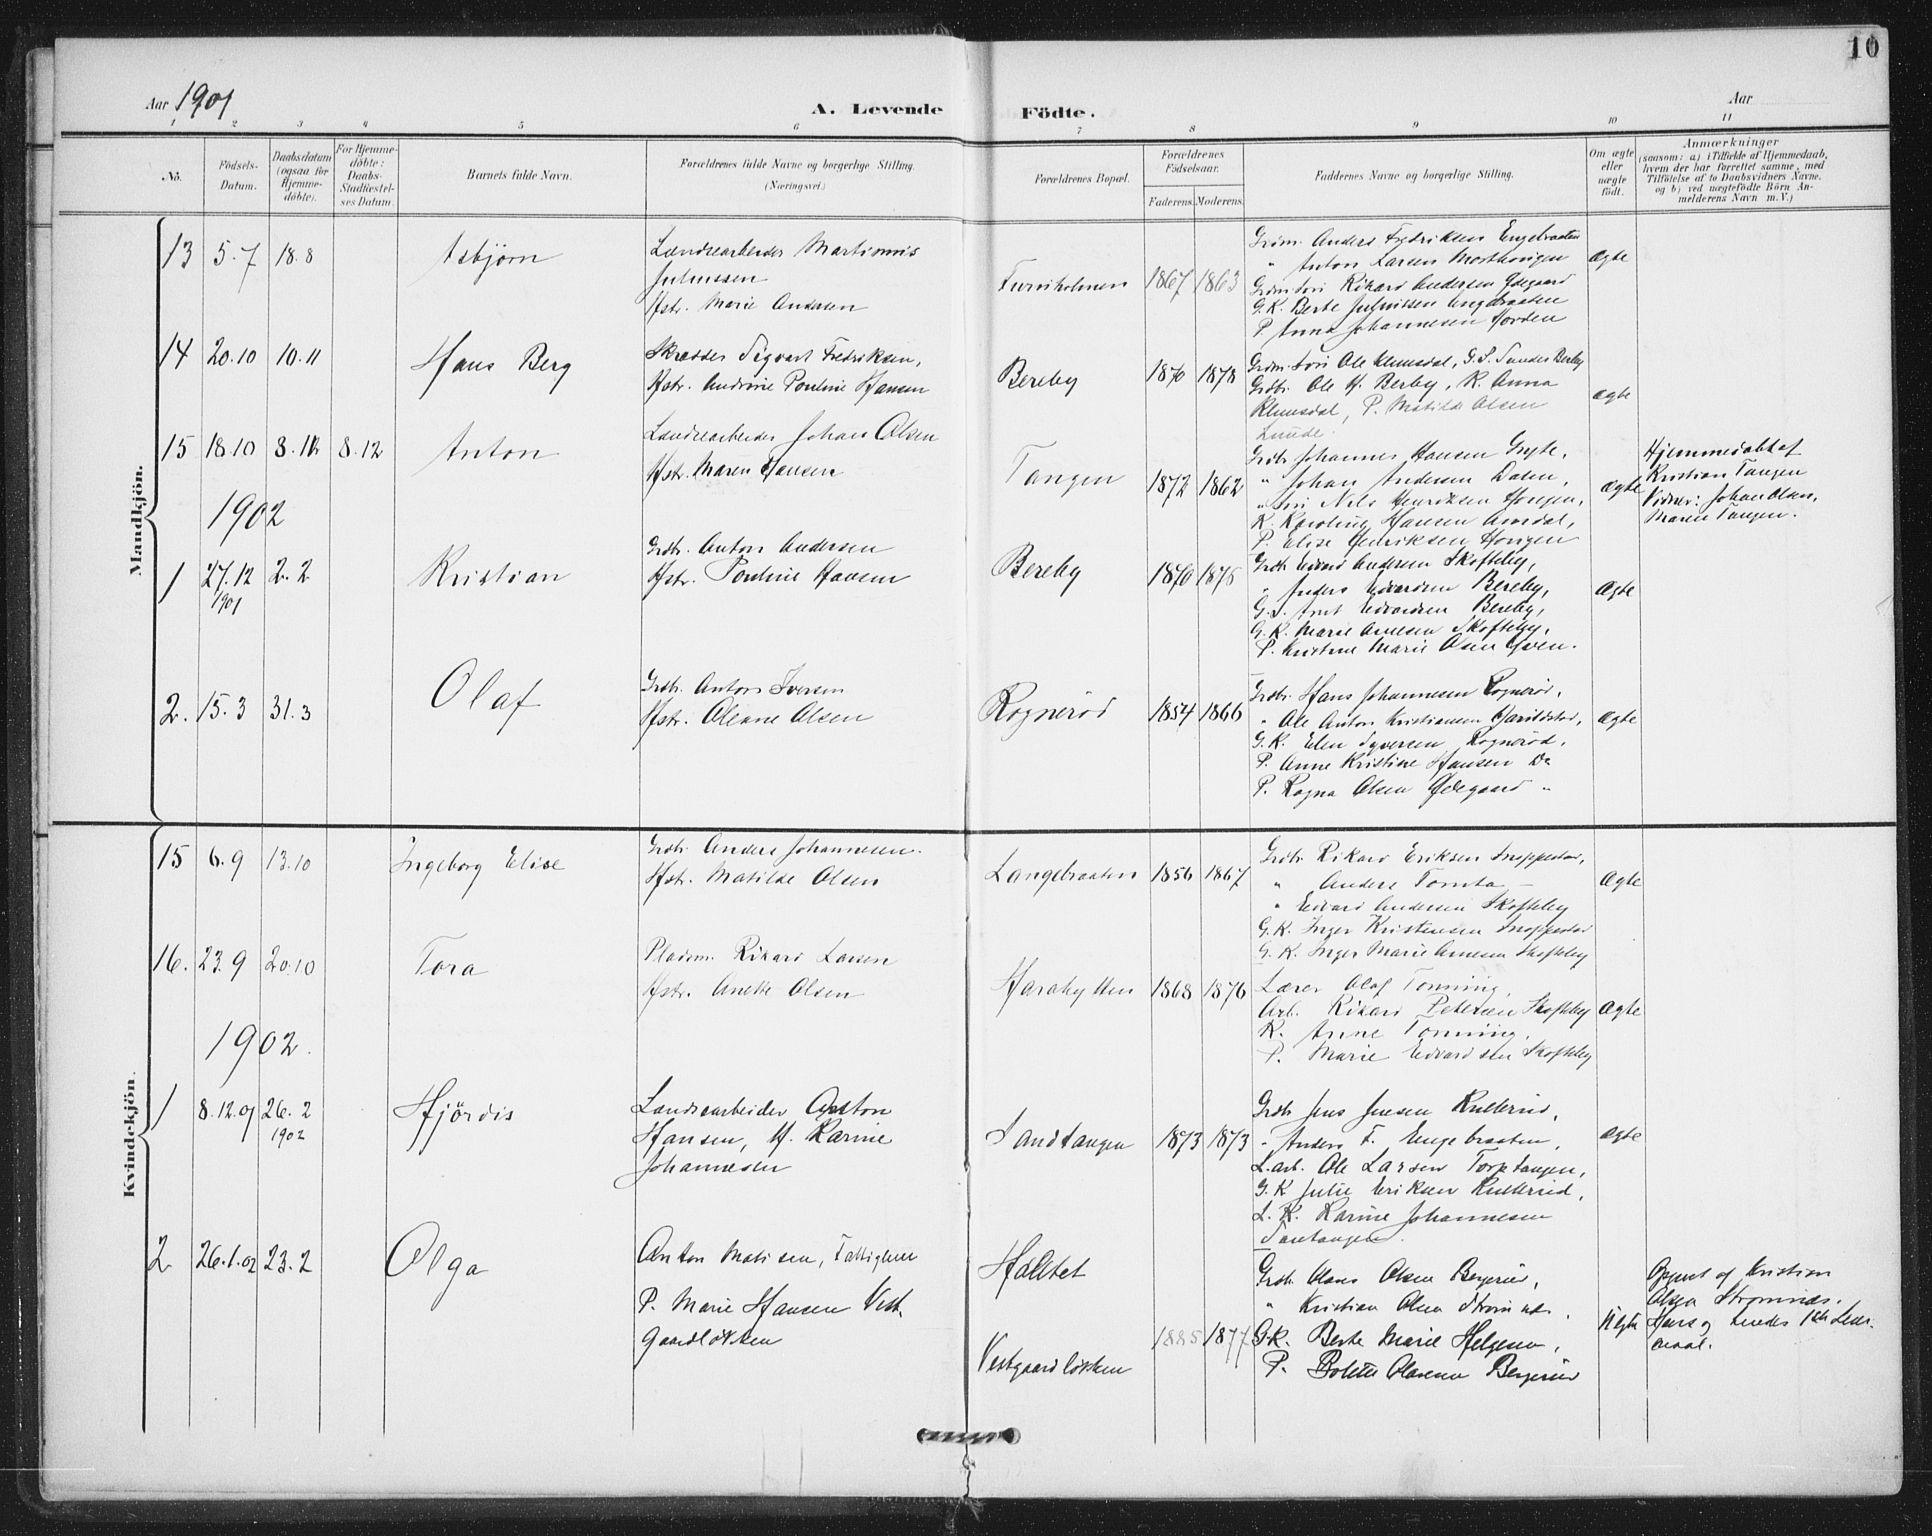 10
Aar 1901
A. Levende Födte.
Aar
1 2 3 4 5 6 7 8 9 10 11
No.
Födsels-Datum.
Daabsdatum (ogsaa for Hjemme-döbte).
For Hjemme-döbte: Daabs-Stadfæstelses Datum.
Barnets fulde Navn.
Forældrenes fulde Navne og borgerlige Stilling.
(Næringsvei.)
Forældrenes Bopæl.
Forældrenes Födselsaar.
Faderens. Moderens.
Faddernes Navne og borgerlige Stilling.
Om ægte eller uægte födt.
Anmærkninger
(saasom: a) i Tilfælde af Hjemmedaab, hvem der har forrettet samme, med Tilföielse af to Daabsvidners Navne, og b) ved uægtefödte Börn Anmelderens Navn m. V.)
Mandkjön.
13 5.7 18.8 Asbjörn
Landsearbeider Martinius
Juliussen
Hstr. Marie Andersen
Furuholmen 1867 1863
Grdm. Anders Fredriksen Engebraaten
" Anton Larsen
Rikard Andersen Ødegaard
G.K. Berte Juliussen Engebraaten
P. Anna Johannesen
Ægte
14 20.10 10.11 Hans Berg
Skrædder Sigvart Fredriksen,
Hstr. Andrine Pouline Hansen
Bereby 1870 1878
Ole Klemsdal, G.S. Berby
Grdbr. Ole H. Berby, K. Anna
Klemsdal, P. Matilde Olsen
Lunde.
Ægte
15 18.10 8.12 8.12 Anton
Landsearbeider Johan Olsen
Hstr. Maren Hansen
Tangen 1872 1862
Grdbr. Johannes Hansen
" Johan Andersen Dalen,
Nils Henriksen
K. Karoline Hansen
P. Elise Henriksen
Ægte
Hjemmedøbt af
Kristian Tangen
Vidner: Johan Olsen,
Maren Tangen.
1902
1 27.12 1901 2.2 Kristian
Grdbr. Anton Andersen
Hstr. Pouline Hansen
Bereby 1870 1875
Grdb. Edvard Andersen Skofteby,
" Anders Edvardsen Bereby,
G.S. Edvardsen Bereby,
G.K. Marie Arnesen Skofteby,
P. Kristine Marie Olsen
Ægte
2. 15.3 31.3 Olaf
Grdbr. Anton Iversen
Hstr. Oleane Olsen
Rognerød 1854 1866
Grdbr. Hans Johannesen Rognerød,
" Ole Anton Kristiansen
G.K. Elen Syversen Rognerød,
P. Anne Kristine Hansen Do
P. Ragna Olsen Ødegaard "
Ægte
Kvindekjön.
15 6.9 13.10 Ingeborg Elise
Grdbr. Anders Johannesen.
Hstr. Matilde Olsen
Langebraaten 1856 1867
Grdbr. Rikard Eriksen
" Anders Tomta
" Edvard Andersen Skofteby
G.K. Inger Kristensen
G.K. Inger Marie Arnesen Skofteby
Ægte
16. 23.9 20.10 Tora
Pladsm. Rikard Larsen
Hstr. Anette Olsen
Harahytten 1868 1876
Lærer Olaf Tonning,
Arb. Rikard Petersen Skofteby
K. Anne Tonning,
P. Marie Edvardsen Skofteby
Ægte
1902.
1 8.12.01 26.2 1902 Hjördis
Landsearbeider Anton
Hansen, H. Karine
Johannesen
Sandtangen 1873 1873
Grdb. Jens Jensen Kullerud,
" Anders F. Engebraaten,
L.arb. Ole Larsen Torptangen,
G.K. Julie Eriksen Kullerud,
L.K. Karine Johannesen
Ægte
2 26.1.02 23.2 Olga
Anton Matisen, Fattiglem
P. Marie Hansen Vest-
gaardløkken
Holtet
Vestgaardløkken
1885 1877
Grdb. Olaus Olsen Bergerud,
" Kristian Olsen
G.K. Berte Marie Helgesen,
P. Bolette Olausen Bergerud
Uægte
Opgivet af Kristian
Olsen Strømnes.